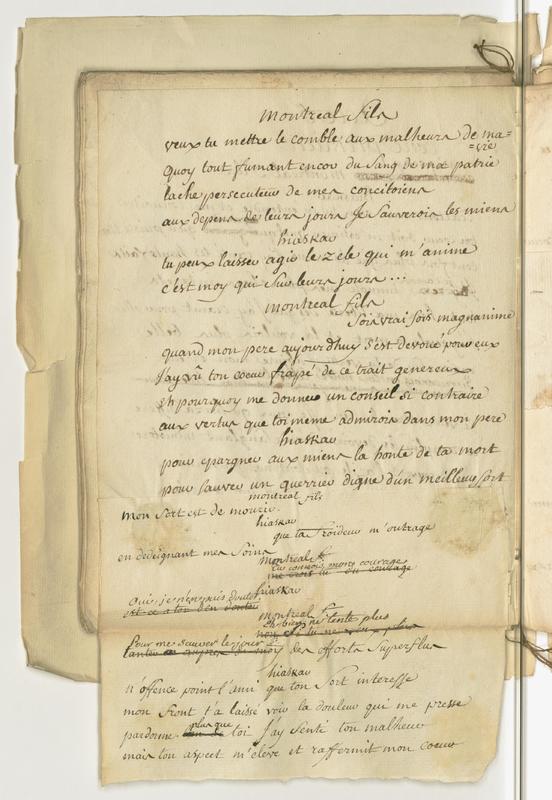 montreal fils
veux tu mettre le comble aux malheurs de ma=
=vie
quoy tout fumant encor du sang de ma patrie
lache persecuteur de mes concitoiens
aux depens de leurs jours je sauverois les miens
hiaskar
tu peux laisser agir le zele qui m'anime
c'est moy qui sur leurs jours ...
montreal fils
sois vrai sois magnanime
quand mon pere aujourdhuy s'est devoué pour eux
j'ay vû ton coeur frapé de ce trait genereux
eh pourquoy me donner un conseil si contraire
aux vertus que toi meme admirois dans mon pere
hiaskar
pour epargner aux miens la honte de ta mort
pour sauver un guerrier digne d'un meilleur sort
montreal fils
mon sort est de mourir.
hiaskar
que ta froideur m'outrage
en dedeignant mes soins
montreal f.
tu connois mon courage
me crois tu du courage
hiaskar
oui, je n'en puis douter
est ce a toi d'en douter
montreal f.
eh bien ne tente plus
Pour me sauver le jour
des efforts superflus
hiaskar
n'offence point l'ami que ton sort interesse
mon front t'a laissé voir la douleur qui me presse
plus que
pardonne toi j'ay senti ton malheur
mais ton aspect m'éleve et raffermit mon coeur